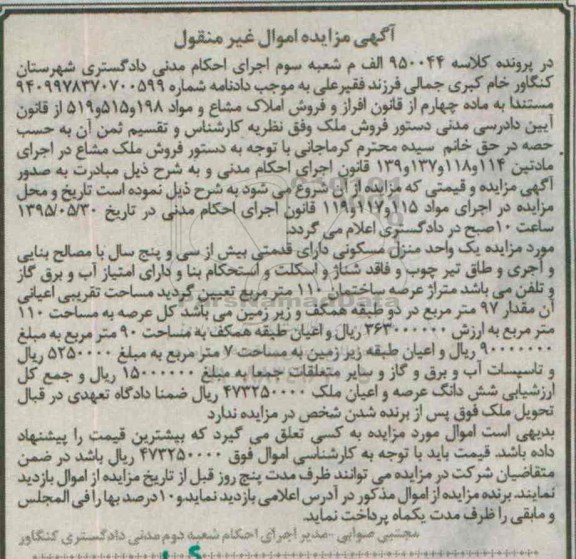 آگهی مزایده اموال غیر منقول
در پرونده کلاسه ۹۵۰۰۴۴ الف م شعبه سوم اجرای احکام مدنی دادگستری شهرستان
کنگاور خام کبری جمالی فرزند فقیرعلی به موجب دادنامه شماره ۹۴۰۹۹۷۸۳۷۰۷۰۰۵۹۹
مستندا به ماده چهارم از قانون افراز و فروش املاک مشاع و مواد ۱۹۸و۵۱۵و۵۱۹ از قانون
آیین دادرسی مدنی دستور فروش ملک وفق نظریه کارشناس و تقسیم ثمن آن به حسب
حصه در حق خانم سیده محترم کرماجانی با توجه به دستور فروش ملک مشاع در اجرای
مادتین ۱۱۴و۱۱۸و۱۳۷و۱۳۹ قانون اجرای احکام مدنی و به شرح ذیل مبادرت به صدور
آگهی مزایده و قیمتی که مزایده از آن شروع می شود به شرح ذیل نموده است تاریخ و محل
مزایده در اجرای مواد ۱۱۵و۱۱۷و۱۱۹ قانون اجرای احکام مدنی در تاریخ ۱۳۹۵/۰۵/۳۰
ساعت ۱۰صبح در دادگستری اعلام می گردد.
مورد مزایده یک واحد منزل مسکونی دارای قدمتی بیش از سی و پنج سال با مصالح بنایی
و آجری و طاق تیر چوب و فاقد شناژ و اسکلت و استحکام بنا و دارای امتیاز آب و برق گاز
و تلفن می باشد متراژ عرصه ساختمان ۱۱۰ متر مربع تعیین گردید مساحت تقریبی اعیانی
آن مقدار ۹۷ متر مربع در دو طبقه همکف و زیر زمین می باشد کل عرصه به مساحت ۱۱۰
متر مربع به ارزش ۳۶۳۰۰۰۰۰۰ ریال و اعیان طبقه همکف به مساحت ۹۰ متر مربع به مبلغ
۹۰۰۰۰۰۰۰ ریال و اعیان طبقه زیر زمین به مساحت ۷ متر مربع به مبلغ ۵۲۵۰۰۰۰ ریال
و تاسیسات آب و برق و گاز و سایر متعلقات جمعا به مبلغ ۱۵۰۰۰۰۰۰ ریال و جمع کل
ارزشیابی شش دانگ عرصه و اعیان ملک ۴۷۳۲۵۰۰۰۰ ریال ضمنا دادگاه تعهدی در قبال
تحویل ملک فوق پس از برنده شدن شخص در مزایده ندارد.
بدیهی است اموال مورد مزایده به کسی تعلق می گیرد که بیشترین قیمت را پیشنهاد
داده باشد. قیمت باید با توجه به کارشناسی اموال فوق ۴۷۳۲۵۰۰۰۰ ریال باشد در ضمن
متقاضیان شرکت در مزایده می توانند ظرف مدت پنج روز قبل از تاریخ مزایده از اموال بازدید
نمایند. برنده مزایده از اموال مذکور در آدرس اعلامی بازدید نمایدو۱۰درصد بها را فی المجلس
و مابقی را ظرف مدت یکماه پرداخت نماید.
مجتبی صوابی -مدیر اجرای احکام شعبه دوم مدنی دادگستری کنگاور